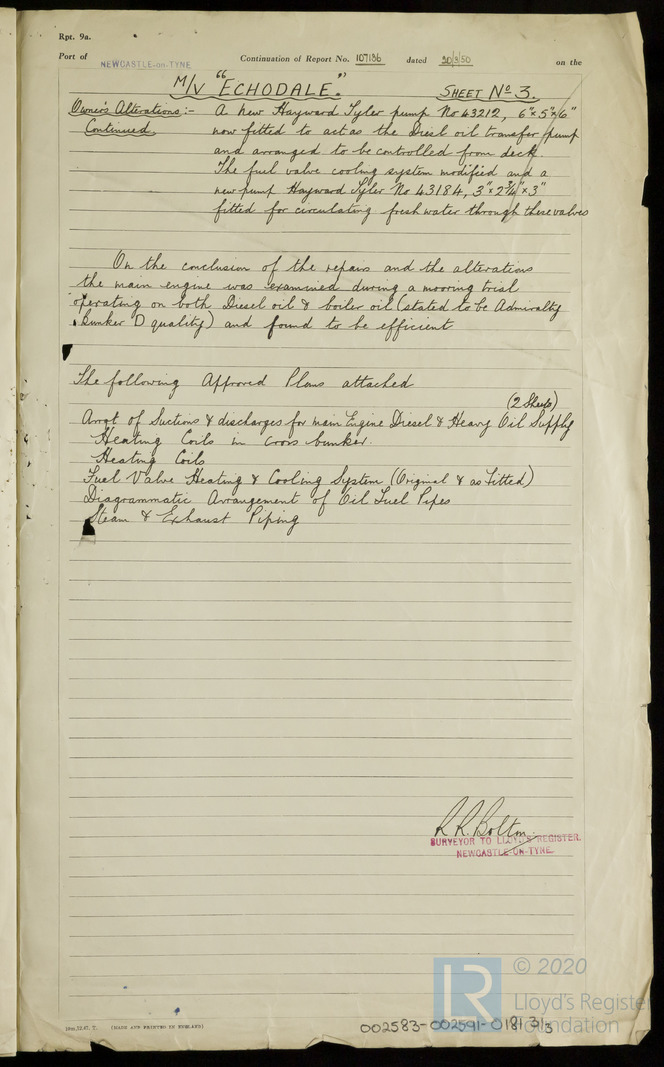 Rpt. 9a.
Port of NEWCASTLE-ON-TYNE Continuation of Report No. 107186 dated 30/3/50 on the
M/V "ECHODALE." SHEET No 3.
Owner's Alterations:- A new Hayward Tyler pump No 43212, 6"x5"x6"
Continued now fitted to act as the Diesl oil transfer pump
and arranged to be controlled from deck.
The fuel valve cooling system modified and a
new pump Hayward Tyler No 43184, 3"x2¾"x3"
fitted for circulating fresh water through these valves
On the conclusion of the repairs and the alterations
the main engine was examined during a mooring trial
operating on both Diesel oil & boiler oil (stated to be Admiralty
Bunker D quality) and found to be efficient
The following Approved Plans attached
(2 Sheets)
Arrgt of Suctions & discharges for main Engine Diesel & Heavy Oil Supply
Heating Coils in cross bunker.
Heating Coils
Fuel Valve Heating & Cooling System (Original & as Fitted)
Diagrammatic Arrangement of Oil Fuel Pipes
Steam & Exhaust Piping
R. R. Bolton.
SURVEYOR TO LLOYD'S REGISTER.
NEWCASTLE-ON-TYNE.
LR © 2020
Lloyd's Register
Foundation
10m,12.47. T. (MADE AND PRINTED IN ENGLAND)
002583-002591-0181 3/3